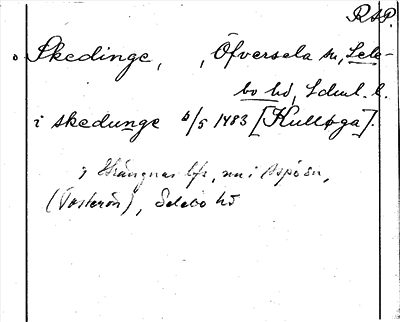 RSP.
Skedinge, , Öfversela sn, Sele-
bo hd, Sdml. l.
i skedunge 6/5 1483 [Kulløga].
i Strängnäs lfs, nu i Aspö sn,
(Tosterön), Selebo hd